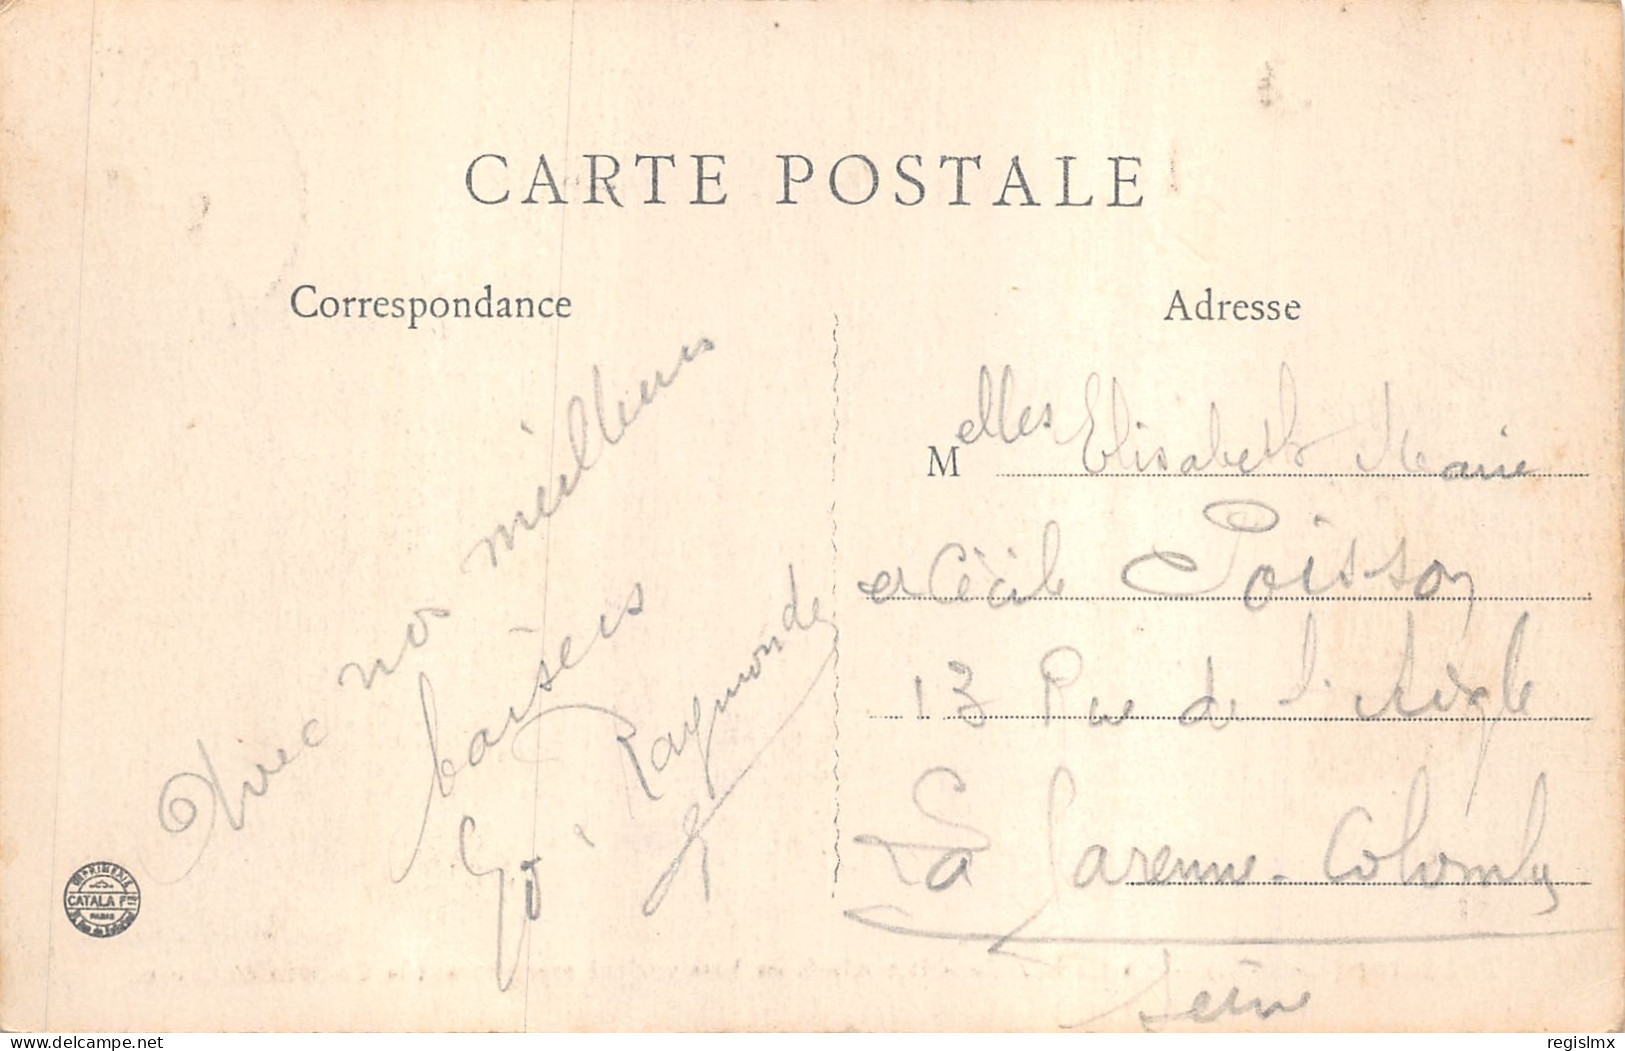 CARTE POSTALE
Correspondance
Avec nos meilleurs
baisers
Raymonde
IMPRIMERIE
CATALA Fres
PARIS
Adresse
Melles Elisabeth Marie
et Cécile Poisson
13 Rue de l'Aigle
La Garenne-Colombes
Seine
delcampe.net
regislmx